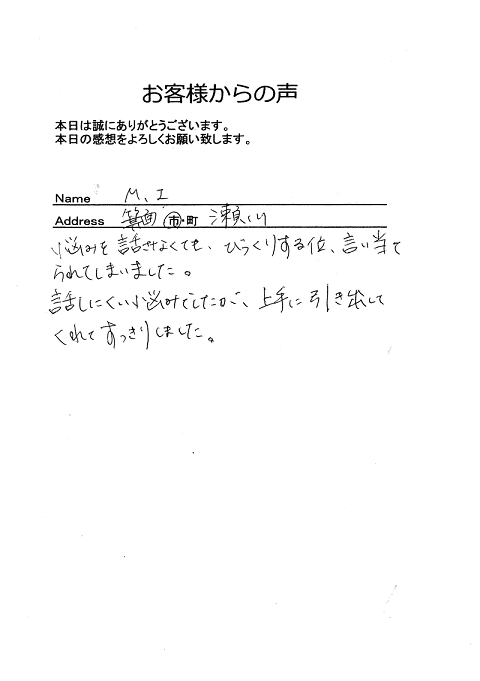 お客様からの声
本日は誠にありがとうございます。
本日の感想をよろしくお願い致します。
Name M、I
Address 箕面 市・町 瀬川
悩みを話さなくても、びっくりする位、言い当て
られてしまいました。
話しにくい悩みでしたが、上手に引き出して
くれてすっきりしました。